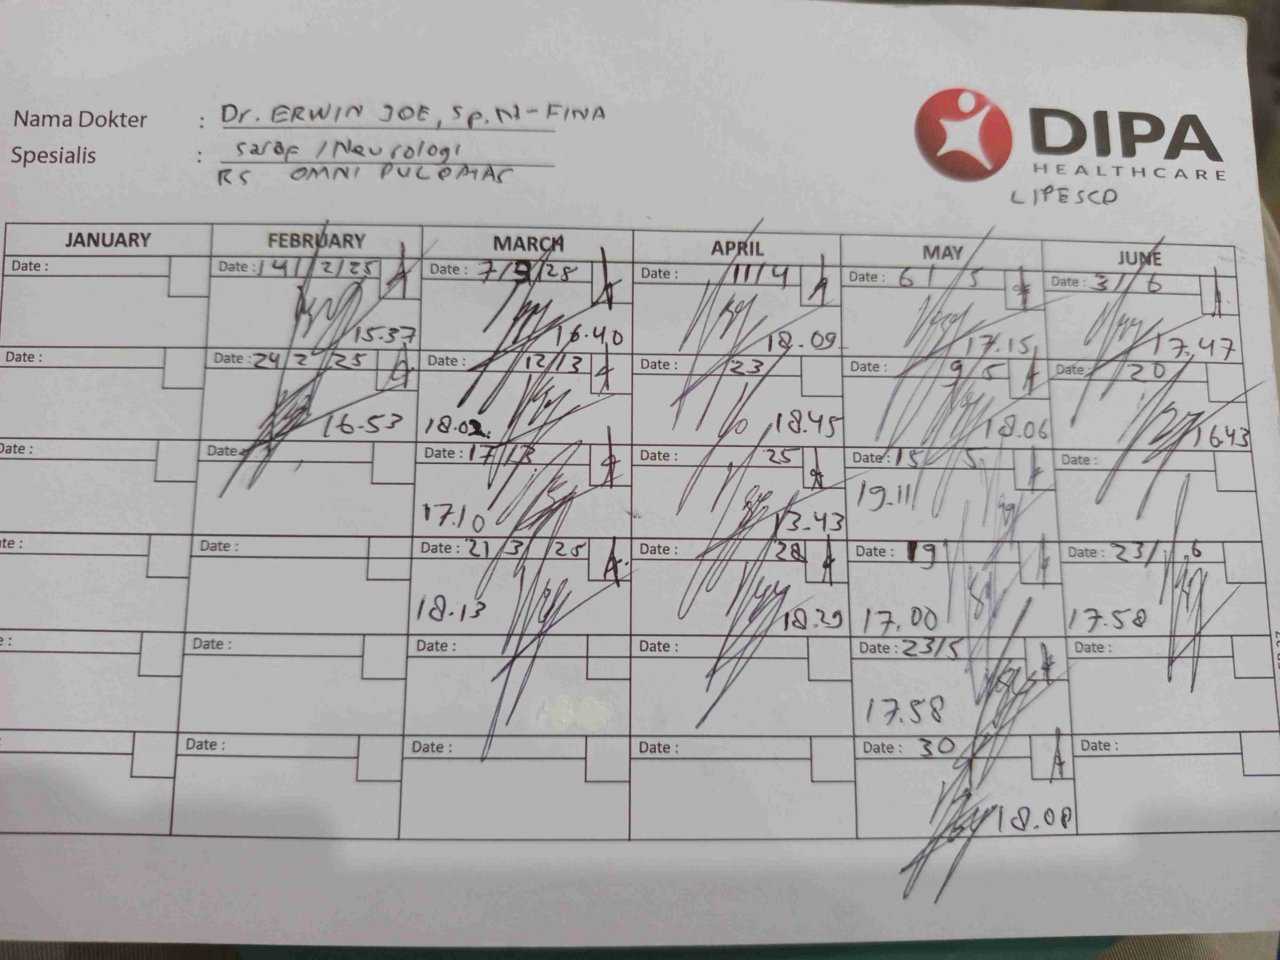 Nama Dokter : Dr. ERWIN JOE, Sp.N-FINA
Spesialis : saraf /Neurologi
RS OMNI PULOMAS
DIPA
HEALTHCARE
LIPESCO
JANUARY FEBRUARY MARCH APRIL MAY JUNE
Date : Date : 14/2/25 Date : 7/3/25 Date : 11/4 Date : 6/5 Date : 3/6
15.37 16.40 18.09 17.15 17.47
Date : Date : 24 2 25 Date : 12/3 Date : 23 Date : 9 5 Date : 20
16.53 18.02 18.45 18.06 16.43
Date : Date : Date : 17/3 Date : 25 Date : 15 5 Date :
17.10 13.43 19.11
te : Date : Date : 21/3/25 Date : 28 Date : 19 Date : 23/6
18.13 18.29 17.00 17.58
e : Date : Date : Date : Date : 23/5 Date :
17.58
: Date : Date : Date : Date : 30 Date :
18.08